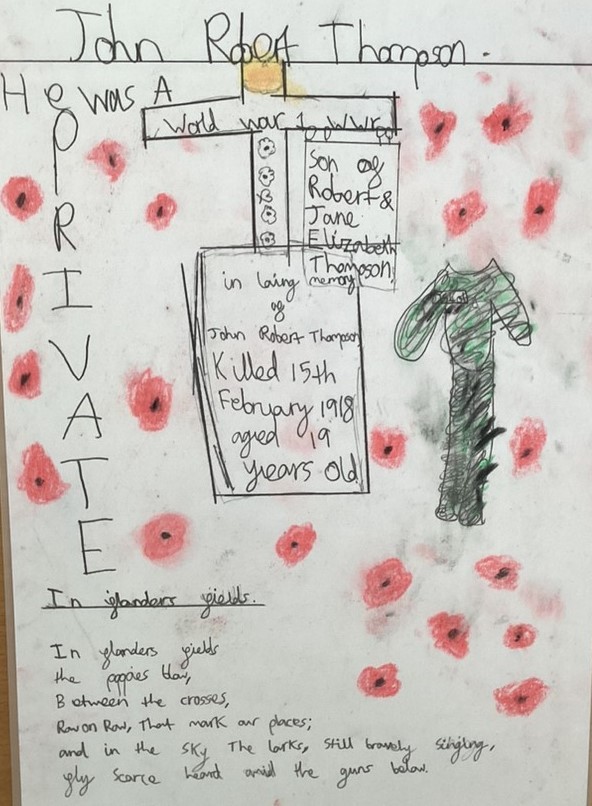 John Robert Thompson.
He was A
PRIVATE
World war 1 WW1
Son of
Robert &
Jane
Elizabeth
Thompson.
in loving memory
of
John Robert Thompson
Killed 15th
February 1918
aged 19
years old
In flanders fields.
In flanders fields
the poppies blow,
Between the crosses,
Row on Row, That mark our places;
and in the sky The larks, Still bravely singing,
fly Scarce heard amid the guns below.